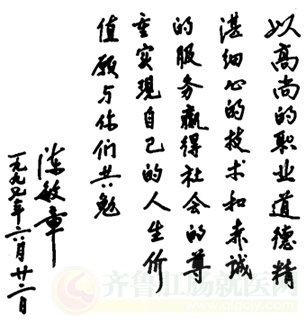 以高尚的职业道德精
湛细心的技术和赤诚
的服务赢得社会的尊
重实現自己的人生价
值愿与你们共勉
陈敏章
一九九年六月廿二日
齐鲁肛肠就医网